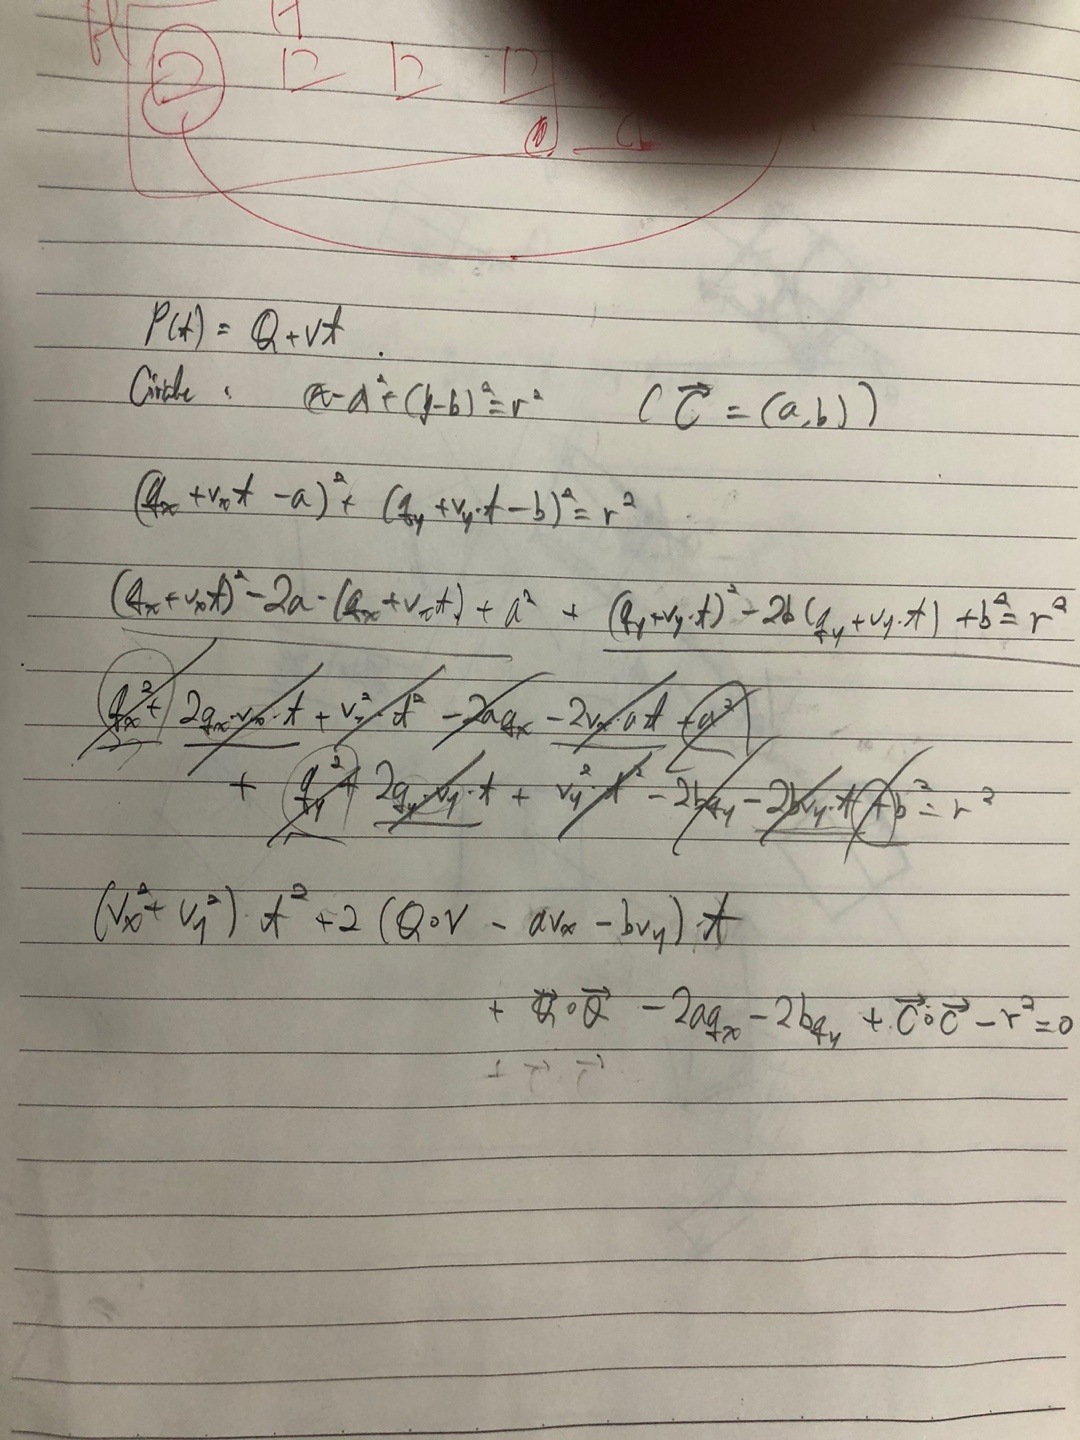 H
D D D D
P(t) = Q + vt
Circle : (x-a)²+(y-b)²=r² ( C⃗ = (a,b) )
(qx + vx t - a)² + (qy + vy·t - b)² = r²
(qx + vx t)² - 2a·(qx + vx t) + a² + (qy + vy·t)² - 2b(qy + vy·t) + b² = r²
qx² + 2qx·vx·t + vx²·t² - 2aqx - 2vx·at + a²
+ qy² + 2qy·vy·t + vy²·t² - 2bqy - 2bvy·t + b² = r²
(vx² + vy²)·t² + 2(Q∘V - avx - bvy)·t
+ Q⃗∘Q⃗ - 2aqx - 2bqy + C⃗∘C⃗ - r² = 0